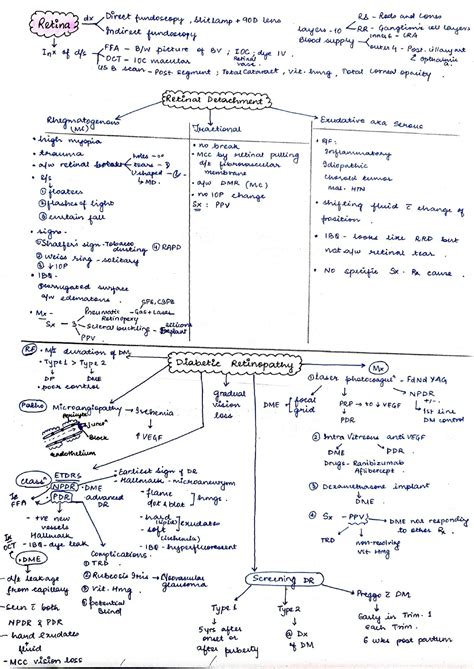 Retina
dx
Direct fundoscopy, slitlamp + 90D lens
Indirect fundoscopy
Inx of d/s
FFA - B/W picture of BV, IOC; dye IV
OCT - IOC macular
Retinal vasc.
US B scan - Post. Segment; Total Cataract, vit. hmg, Total corneal opacity.
layers - 10
R&C - Rods and Cones
RR - Ganglionic cell layers
Blood supply
inner 6 - CRA
outer 4 - Post. ciliary art
& opthalmic a.
Retinal Detachment
Rhegmatogenous
(MC)
• high myopia
• trauma
• a/w retinal breaks
holes - O
tears - D
U shaped - U
> MD.
• S/S
① floaters
② flashes of light
③ curtain fall
• signs.
① Shaffer's sign - Tobacco dusting
④ RAPD
② Weiss ring - solitary
③ ↓ IOP
• IBQ -
corrugated surface
a/w edematous.
• Mx -
Pneumatic Retinopexy
SF6, C3F8
- Gas + Laser
Sx - 3
Scleral buckling - silicone implant
PPV
Tractional
• no break
• MCC by retinal pulling
d/t fibrovascular
membrane
• a/w DMR (MC)
• no IOP change
Sx : PPV
Exudative aka Serous
• RF:
Inflammatory
Idiopathic
choroid tumor
mal. HTN
• shifting fluid c̄ change of
position.
• IBQ - looks like RRD but
not a/w retinal tear.
• No specific Sx. Rx cause.
Diabetic Retinopathy
RF
• M/C duration of DM
• Type 1 > Type 2
DR
DME
• poor control
Patho
Microangiopathy → Ischemia
↑ VEGF
Pericyte
Block
endothelium
gradual
vision
loss
Class
ETDRS
NPDR
DME
PDR
advanced DR
Ix
FFA
- +ve new
vessels
Hallmark
- IBQ - dye leak
Ix
OCT
• DME
- d/t leakage
from capillary
- Seen c̄ both
NPDR & PDR
- hard exudates
fluid
- MCC vision loss
- Earliest sign of DR
- Hallmark - microaneurysm
- flame
dot & blot
hmge
- hard
soft
(ischemia)
exudates
- IBQ - hyperfluorescent
Complications.
① TRD
② Rubeosis Iris → Neovascular glaucoma
③ Vit. Hmg
④ potential blind
Mx
① Laser photocoagulⁿ - FdNd YAG
DME
focal
grid
PRP → to ↓ VEGF
NPDR
1st line
DM control
② Intra Vitreous anti VEGF
DME
Drugs - Ranibizumab
Aflibercept
③ Dexamethasone implant
DME
④ Sx - PPV
DME not responding
to other Rx.
TRD
non-resolving
vit. Hmg
Screening DR
Type 1
5 yrs after
onset or
after puberty
Type 2
@ Dx
of DM
Preggo c̄ DM
Early in Trim. 1
each Trim.
6 wks post partum